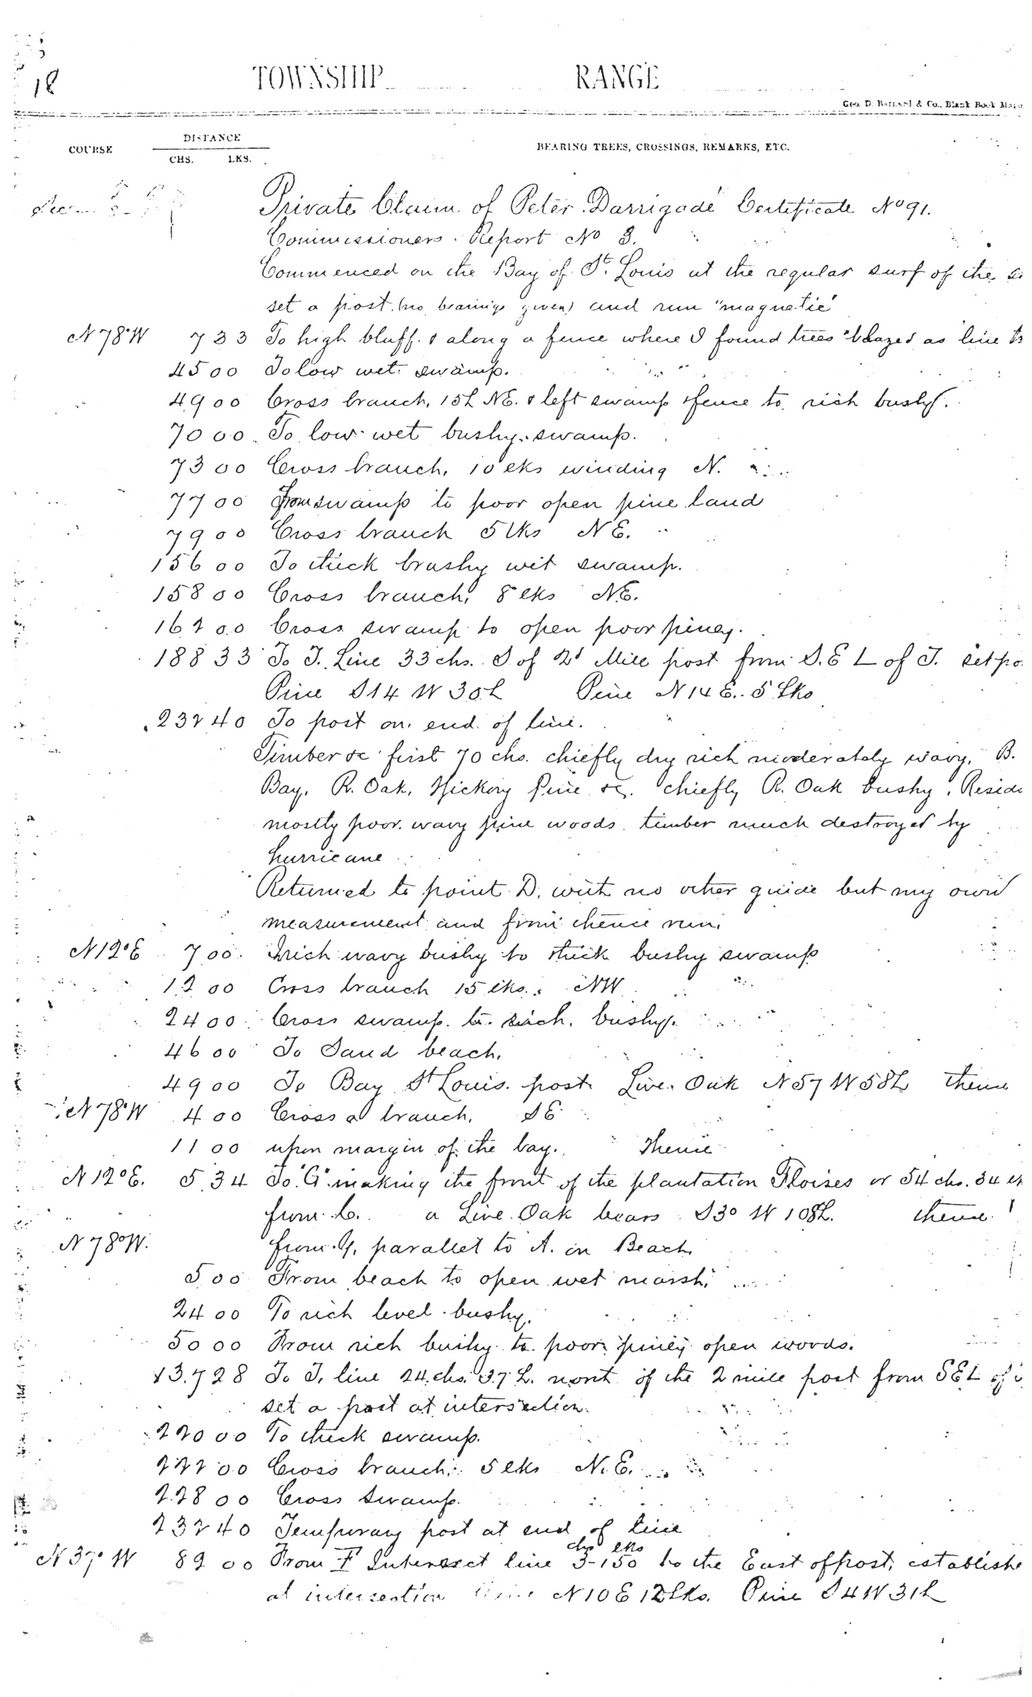 18
TOWNSHIP RANGE
Geo. D. Barnard & Co., Blank Book
COURSE DISTANCE BEARING TREES, CROSSINGS, REMARKS, ETC.
CHS. LKS.
Private Claim of Peter Darrigade Certificate No 91.
Commissioners Report No 3.
Commenced on the Bay of St. Louis at the regular surf of the
set a post (no bearings given) and run "magnetic"
N78°W 7 33 To high bluff & along a fence where I found trees blazed as line
45 00 To low wet swamp.
49 00 Cross branch, 15L NE. & left swamp & fence to rich bushy.
70 00 To low wet bushy swamp.
73 00 Cross branch, 10 lks winding N.
77 00 From swamp to poor open pine land
79 00 Cross branch 5 lks NE.
156 00 To thick brushy wet swamp.
158 00 Cross branch, 8 lks NE.
162 00 Cross swamp to open poor piney.
188 33 To T. Line 33 chs. S of 2d Mile post from S.E L of T. set
Pine S14 W 30L Pine N14 E. 5 Lks
232 40 To post on end of line.
Timber &c first 70 chs. chiefly dry rich moderately wavy, B.
Bay, R. Oak, Hickory Pine &c. chiefly R. Oak bushy,
mostly poor wavy pine woods timber much destroyed by
hurricane
Returned to point D. with no other guide but my own
measurement and from thence run,
N12°E 7 00 rich wavy bushy to thick bushy swamp
12 00 Cross branch 15 lks. NW
24 00 Cross swamp to rich bushy.
46 00 To Sand beach.
49 00 To Bay St Louis post Live Oak N57 W 58L thence
N78°W 4 00 Cross a branch, SE
11 00 upon margin of the bay. Thence
N12°E. 5 34 To "G" making the front of the plantation or 54 chs. 34
from C. a Live Oak bears S30 W 108L. thence
N78°W. from G, parallel to A. in Beach
5 00 From beach to open wet marsh,
24 00 To rich level bushy.
50 00 From rich bushy to poor piney open woods.
137 28 To T. line 24 chs. 37 L. north of the 2 mile post from SEL of
set a post at intersection.
220 00 To thick swamp.
222 00 Cross branch, 5 lks N.E.
228 00 Cross Swamp.
232 40 Temporary post at end of line
N37°W 82 00 From F Intersect line 3 chs 150 lks to the East of post,
at intersection N10E 12 Lks. Pine S4W 31L